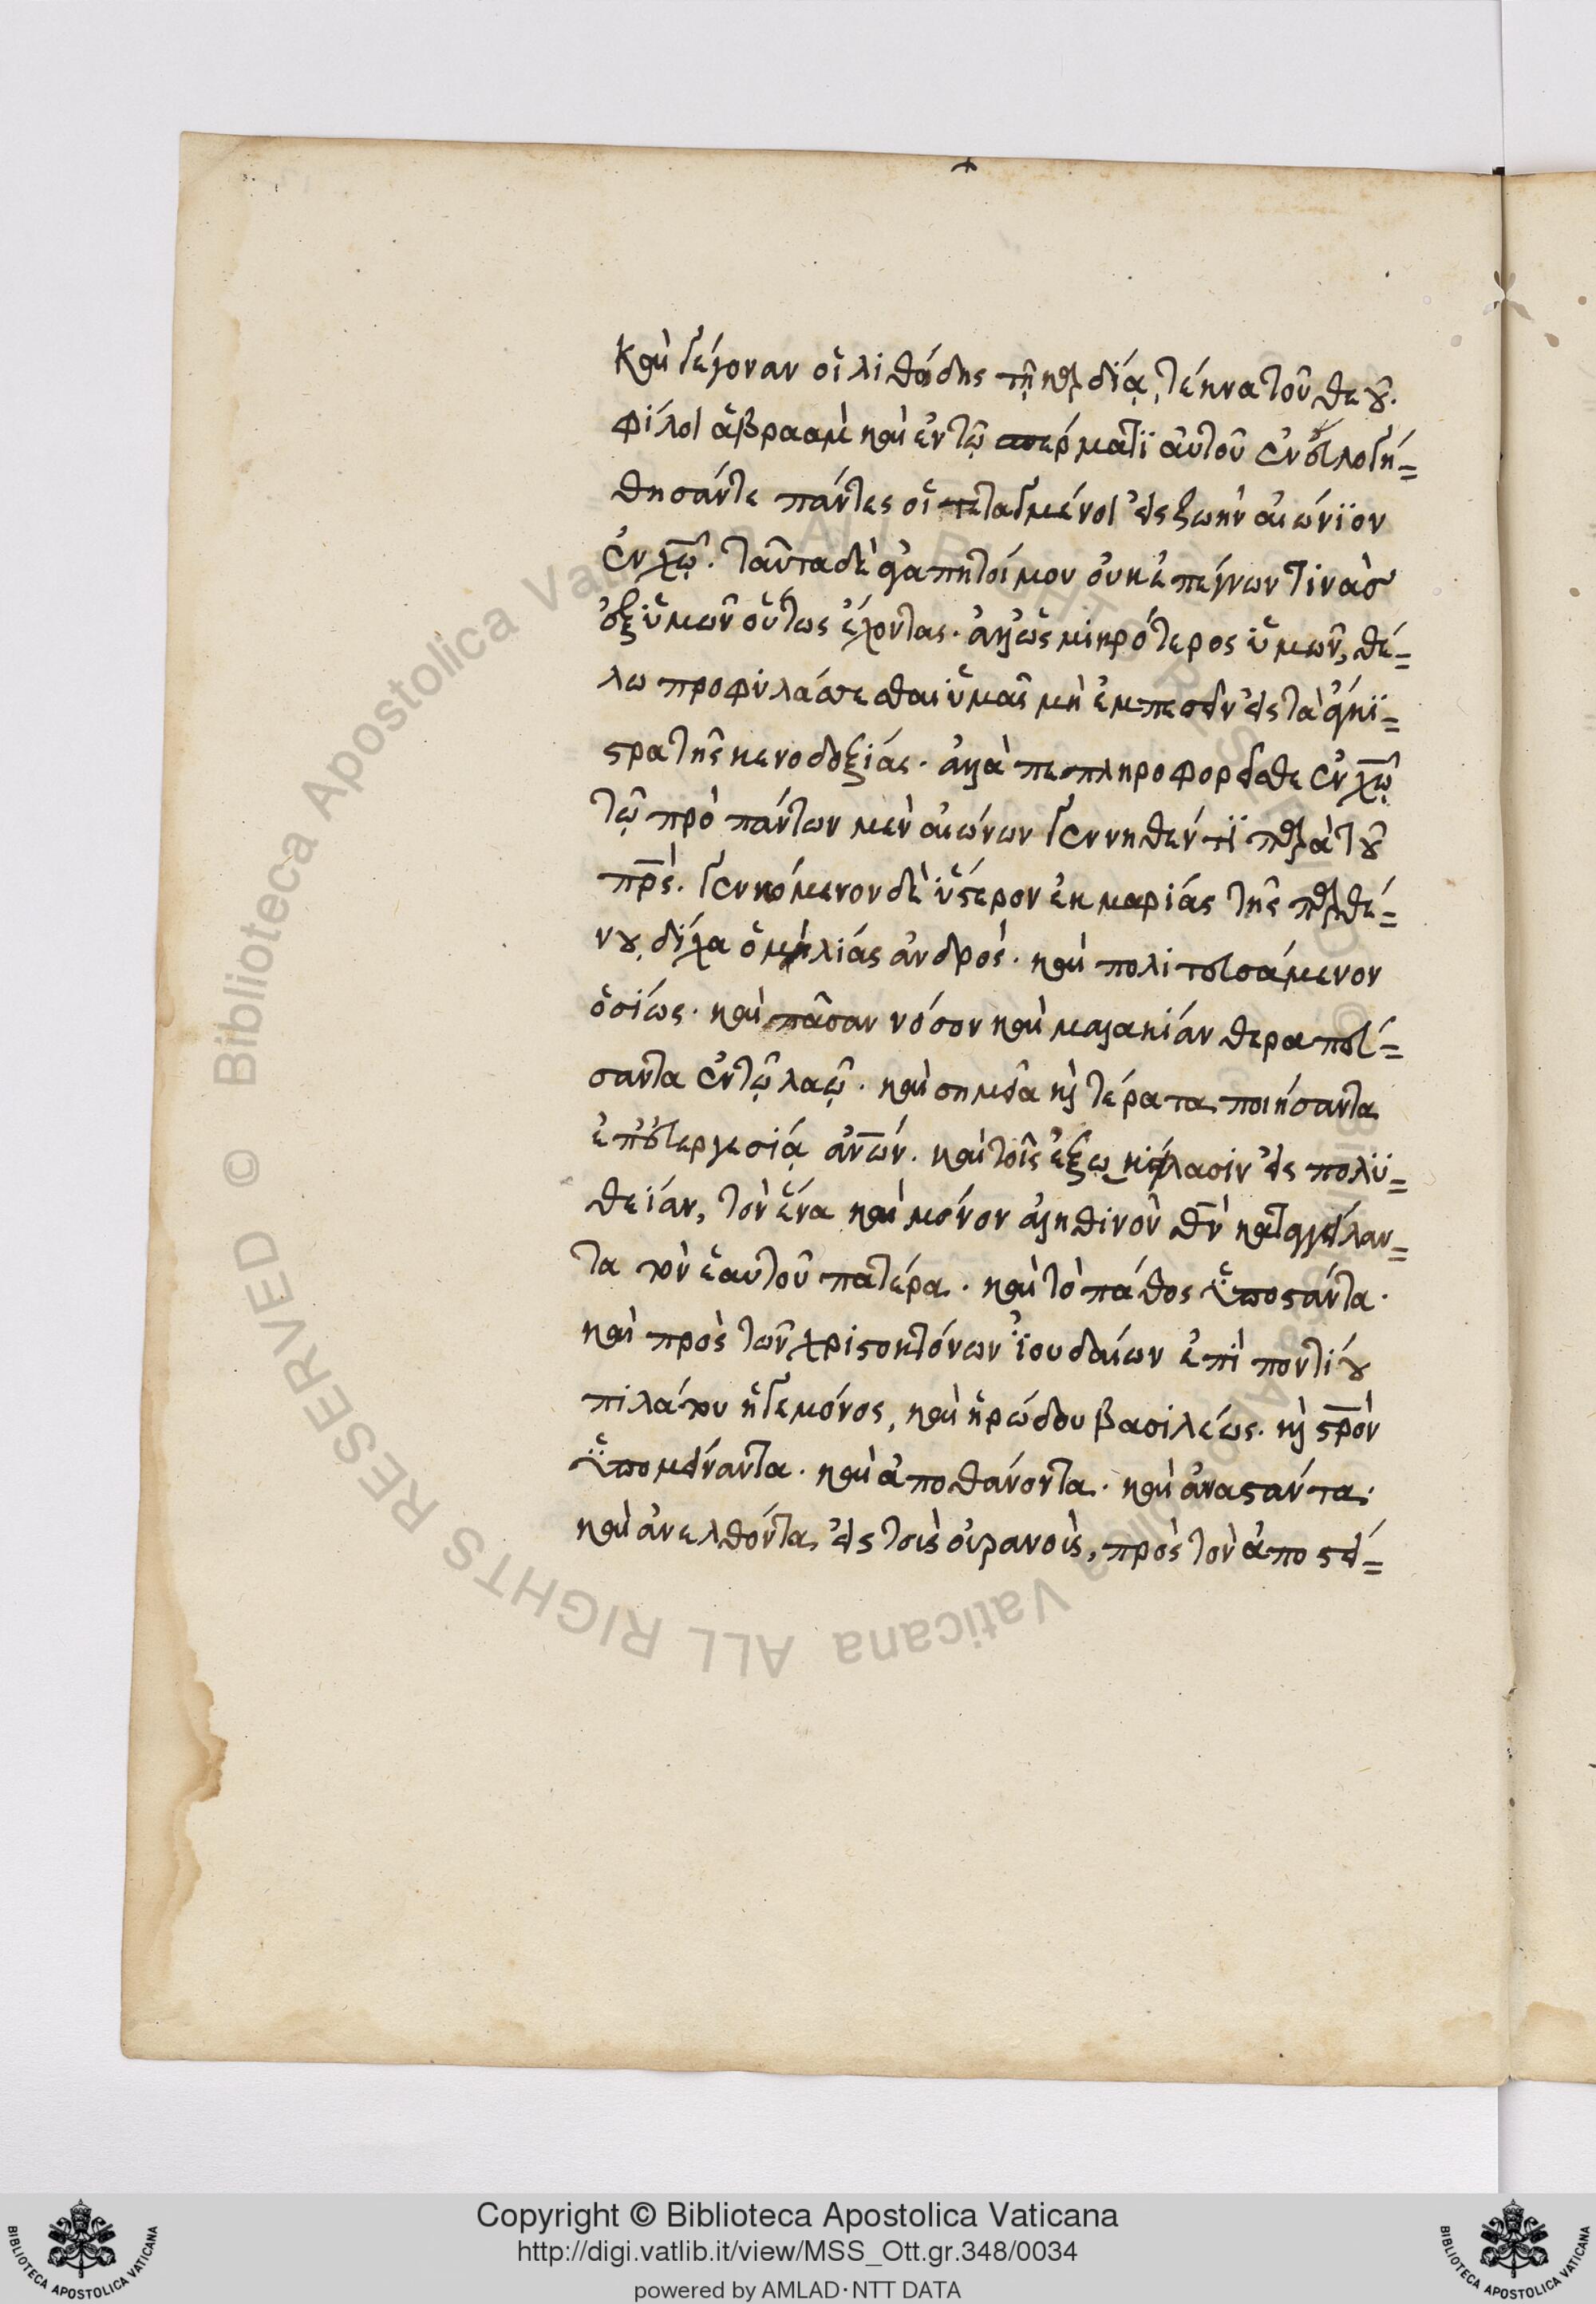 καὶ γέγοναν οἱ λιθώδης τῇ καρδίᾳ, τέκνα τοῦ θεοῦ.
φίλοι ἀβραὰμ καὶ ἐν τῷ σπέρματϊ αὐτοῦ ἐνευλογή=
θησάντε πάντες οἱ τεταγμένοι εἰς ζωὴν αἰώνϊον
ἐν χῷ. ταῦτα δὲ ἀγαπητοί μου οὐκ ἐπέγνων τινὰσ
ἐξ ὑμῶν οὕτως ἔχοντας. ἀλλ' ὡς μικρότερος ὑμῶν, θέ=
λω προφυλάσσεσθαι ὑμᾶς μὴ ἐμπεσεῖν εἰς τὰ ἄγκϊ=
στρα τῆς κενοδοξίας. ἀλλὰ πεπληροφορεῖσθε ἐν χῷ
τῷ πρὸ πάντων μὲν αἰώνων γεννηθέντϊ παρὰ τοῦ
πρς. γενόμενον δὲ ὕστερον ἐκ μαρίας τῆς παρθέ=
νου, δίχα ὁμιλίας ἀνδρός. καὶ πολιτευσάμενον
ὁσίως. καὶ πᾶσαν νόσον καὶ μαλακίαν θεραπεύ=
σαντα ἐν τῷ λαῷ. καὶ σημεῖα καὶ τέρατα ποιήσαντα
ἐπ' εὐεργεσίᾳ ἀνῶν. καὶ τοῖς ἐξωκείλασιν εἰς πολϋ=
θείαν, τὸν ἕνα καὶ μόνον ἀληθινὸν θν καταγγείλαν=
τα τὸν ἑαυτοῦ πατέρα. καὶ τὸ πάθος ὑποστάντα.
καὶ πρὸς τῶν χριστοκτόνων ἰουδαίων ἐπὶ ποντίου
πιλάτου ἡγεμόνος, καὶ ἡρώδου βασιλέως. καὶ στρον
ὑπομείναντα. καὶ ἀποθανόντα. καὶ ἀναστάντα.
καὶ ἀνελθόντα εἰς τοὺς οὐρανοὺς, πρὸς τὸν ἀποστεί=
Copyright © Biblioteca Apostolica Vaticana
http://digi.vatlib.it/view/MSS_Ott.gr.348/0034
powered by AMLAD·NTT DATA